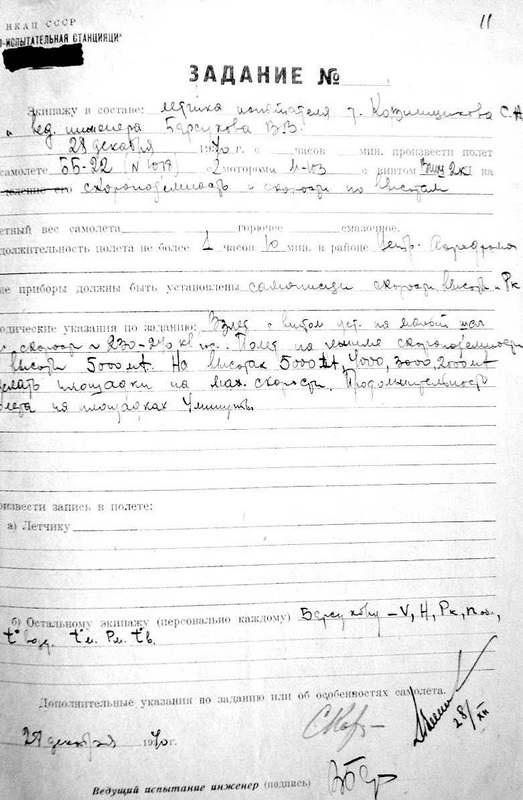 11
НКАП СССР
О-ИСПЫТАТЕЛЬНАЯ СТАНЦИЯ
ЗАДАНИЕ №
Экипажу в составе: летчика испытателя т.
и вед. инженера Барсукова В.В.
28 декабря 1940 г. с часов мин. произвести полет
самолете ББ-22 (№ 1078) с 2 моторами М-103 с винтом на
скороподъемность и скорость по высотам
етный вес самолета горючее смазочное.
должительность полета не более 1 часов 10 мин. в районе центр. Аэродрома
ие приборы должны быть установлены самописцы скорости, высоты, Рк
одические указания по заданию: Взлет с винтом уст. на малый шаг
скорость 230-240 км. Полет на режиме скороподъемности
высоты 5000 mt. На высотах 5000 mt, 4000, 3000, 2000 mt
делать площадки на мах. скорость. Продолжительность
лета на площадках 4 минуты
оизвести запись в полете:
а) Летчику
б) Остальному экипажу (персонально каждому) Барсукову – V, H, Рк,
t° вод. t°м. Рм. t°в.
Дополнительные указания по заданию или об особенностях самолета.
28/XII
декабря 1940 г.
Ведущий испытание инженер (подпись)